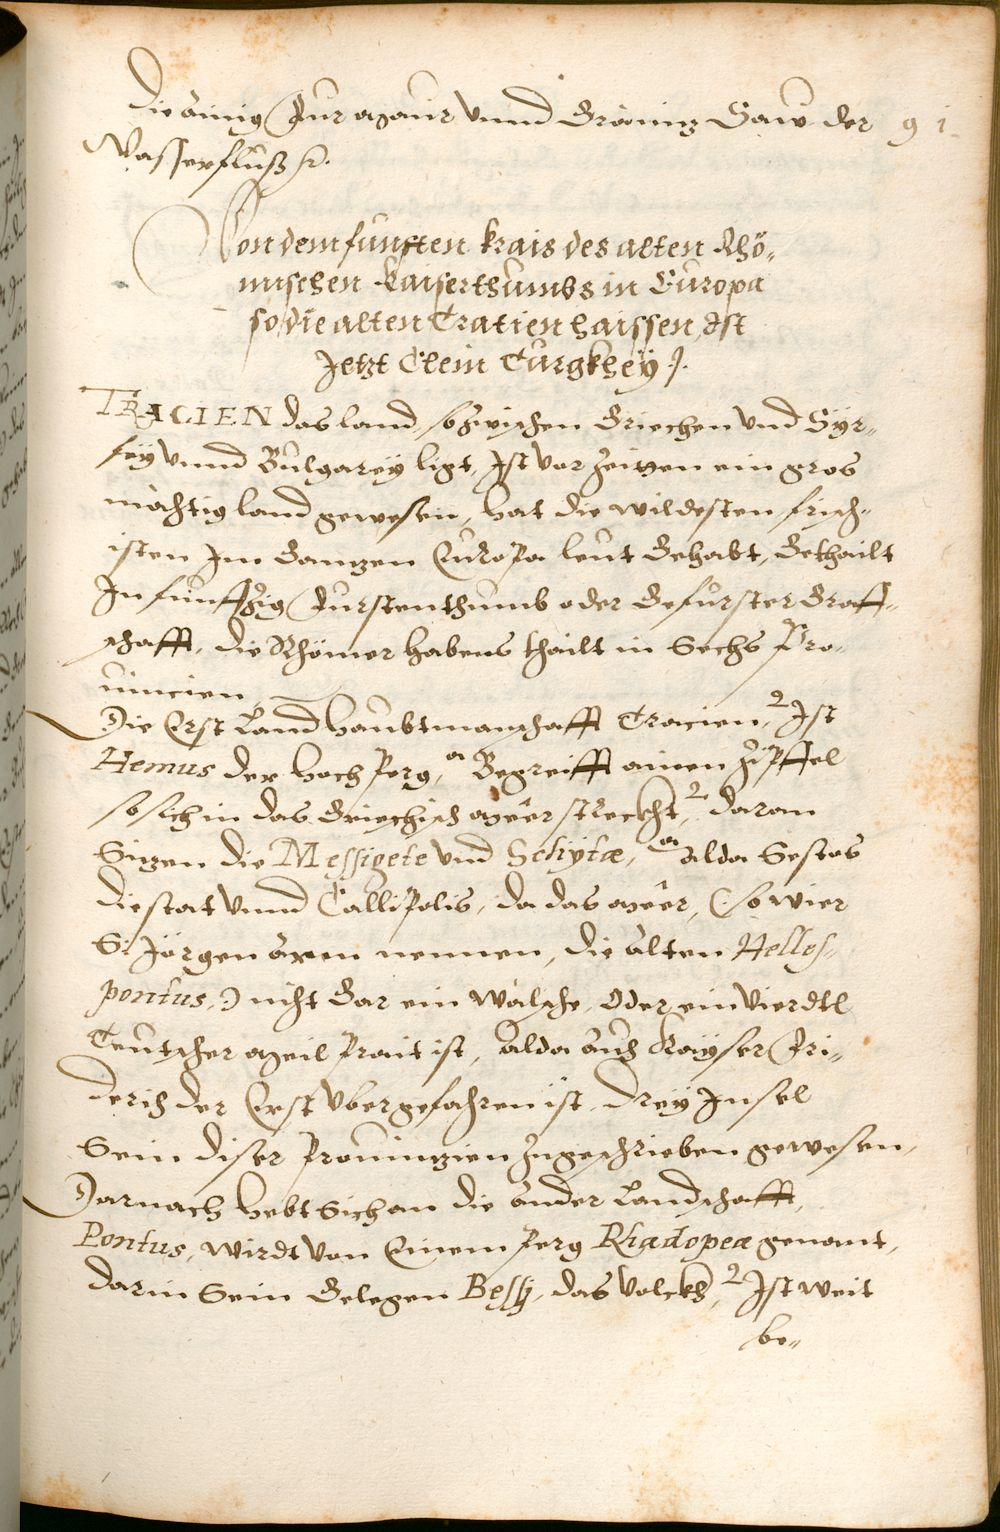 die ainig Fur maur vnnd Gräniz Saw der 91
Wasserfluß
Von dem funften krais des alten Rhö„
mischen Kaiserthumbs in Europa
so die alten Tratien haissen, Ist
Jetzt Clein Turgkheÿ
TRACIEN das land, so zwischen Griechen vnd Syr„
feÿ vnnd Bulgareÿ ligt, Ist vor Zeitten ein gros
mächtig land gewesen, hat die wildesten frisch„
isten Im Ganzen Europa leut Gehabt, Gethailt
In funffzig Furstenthumb oder Gefurster Graff„
schafft, die Rhömer habens thailt in Sechs Pro„
uincien
Die Erst Land haubtmanschafft Tracien, Ist
Hemus der hoch Perg, Begreifft ainen Zipffel
so sich in das Griechisch meer streckht, daran
Sizen die Messigete vnd Schytæ, alda Sestos
die stat vnnd Callipolis, da das meer, (: so wier
S: Jörgen arm nennen, die alten Helles„
pontus, :) nicht Gar ein Wälsche, Oder ein Vierdtl
Teutscher meil Prait ist, alda auch Kayser Fri„
derich der Erst vbergefahren ist, dreÿ Insel
Sein diser Prouinzien Zugeschrieben gewesen,
Darnach hebt Sich an die ander Landschafft,
Pontus, wirdt von Einem Perg Rhadopea genant,
darin Sein Gelegen Bessÿ, das volckh, Ist weit
be„